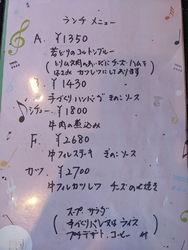 ランチ メニュー
A. ¥1350
若どりのコルドンブルー
(とりムネ肉のあいだにチーズ ハムを
はさみ カツレツにしております)
¥1430
手づくりハンバーグ きのこソース
シチュー ¥1800
牛肉の煮込み
F. ¥2680
牛フィレステーキ きのこソース
カツ. ¥2700
牛フィレカツレツ チーズの
スープ サラダ
手づくりパン又はライス
プチデザート. コーヒー 付